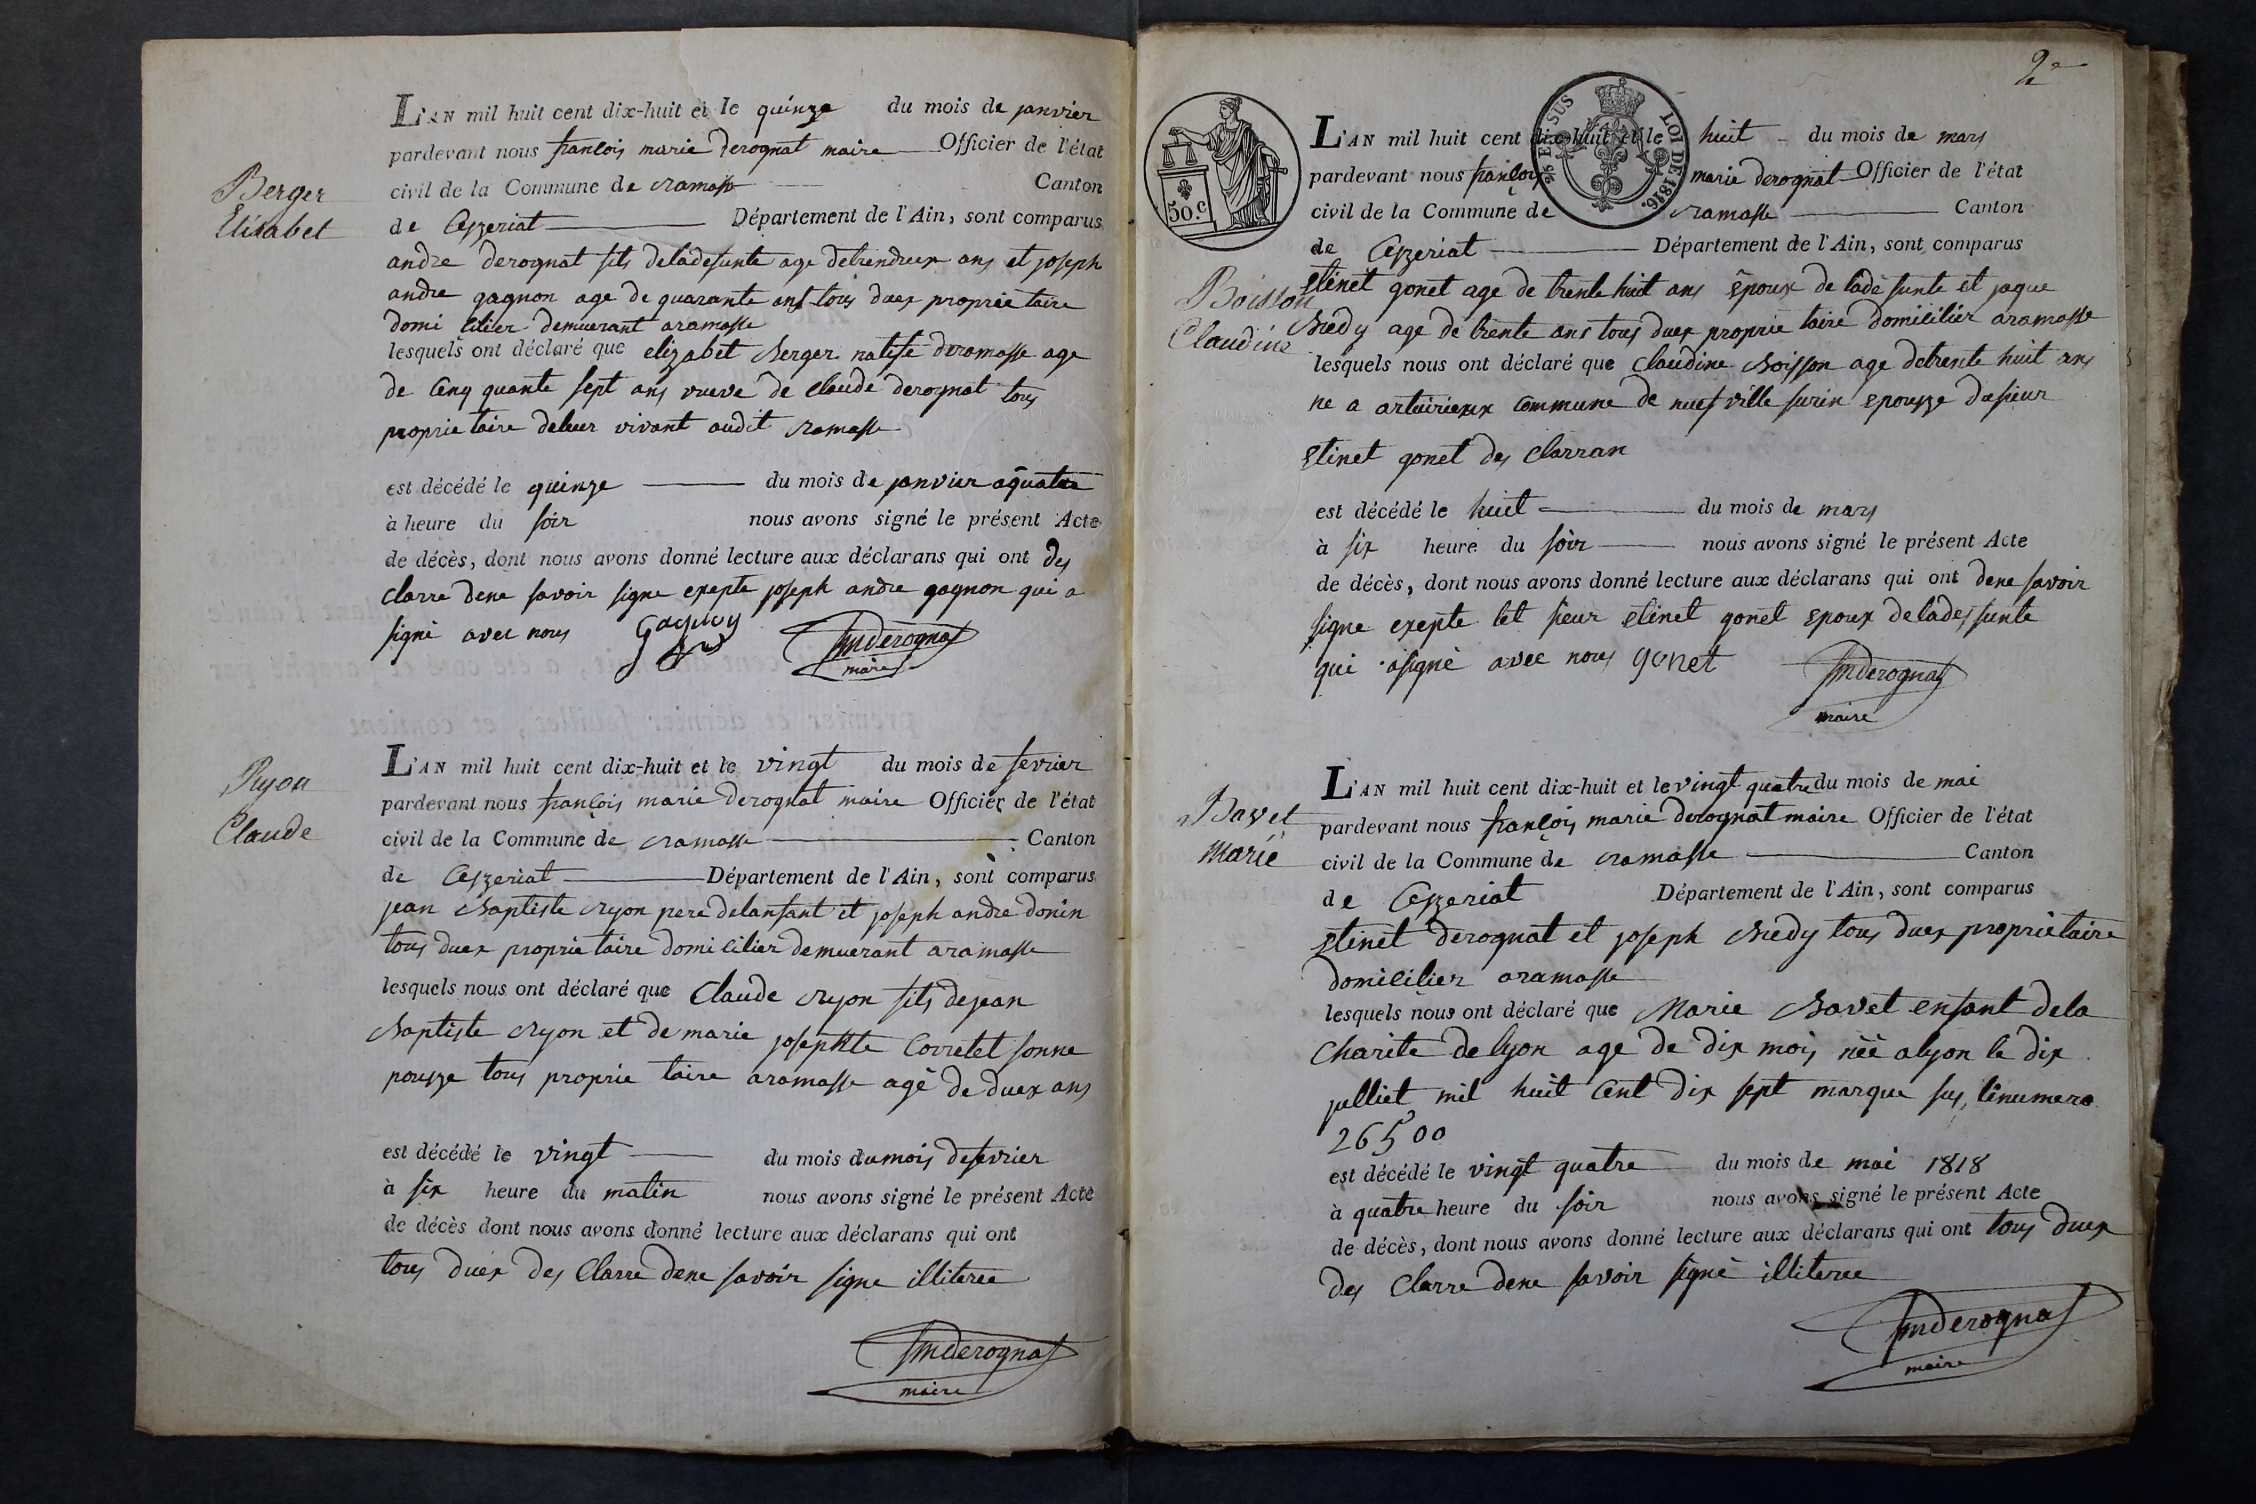 Berger
Elisabet
L'AN mil huit cent dix-huit et le quinze du mois de janvier
pardevant nous françois marie derognat maire Officier de l'état
civil de la Commune de ramasse Canton
de Ceyzeriat Département de l'Ain, sont comparus
andre derognat fils deladefunte age detrendeux ans et joseph
andre gagnon age de quarante ans tous duex proprie taire
domi cilier demuerant aramasse
lesquels ont déclaré que elizabet Berger natife deramasse age
de cinq quante sept ans vueve de claude derognat tous
proprie taire deleur vivant audit ramasse
est décédé le quinze du mois de janvier aquatre
à heure du soir nous avons signé le présent Acte
de décès, dont nous avons donné lecture aux déclarans qui ont des
clarre dene savoir signe exepte joseph andre gagnon qui a
signé avec nous Gagnon fmderognat
maire
Ryon
Claude
L'AN mil huit cent dix-huit et le vingt du mois de fevrier
pardevant nous françois marie derognat maire Officier de l'état
civil de la Commune de ramasse Canton
de Ceyzeriat Département de l'Ain, sont comparus
jean Baptiste Ryon pere delanfant et joseph andre donin
tous duex proprie taire domi cilier demuerant aramasse
lesquels nous ont déclaré que Claude Ryon fils dejean
Baptiste Ryon et de marie josephte Corretet sonne
pouzze tous proprie taire aramasse agé de duex ans
est décédé le vingt du mois dumois defevrier
à six heure du matin nous avons signé le présent Acte
de décès dont nous avons donné lecture aux déclarans qui ont
tous duex des Clarre dene savoir signe illiteree
fmderognat
maire
2e
50.c
25 E. SUS LOI DE 1816.
Boisson
Claudine
L'AN mil huit cent dix-huit et le huit du mois de mars
pardevant nous françois marie derognat Officier de l'état
civil de la Commune de ramasse Canton
de Ceyzeriat Département de l'Ain, sont comparus
etinet gonet age de trente huit ans Epoux de lade funte et jaque
Buedy age de trente ans tous duex proprie taire domicilier aramasse
lesquels nous ont déclaré que Claudine Boisson age detrente huit ans
ne a artuirieux commune de nuef ville surin epouzze dusieur
etinet gonet des clarran
est décédé le huit du mois de mars
à six heure du soir nous avons signé le présent Acte
de décès, dont nous avons donné lecture aux déclarans qui ont dene savoir
signe exepte let sieur etinet gonet epoux delades funte
qui asigné avec nous gonet fmderognat
maire
Bavet
Marie
L'AN mil huit cent dix-huit et le vingt quatre du mois de mai
pardevant nous françois marie derognat maire Officier de l'état
civil de la Commune de ramasse Canton
de Ceyzeriat Département de l'Ain, sont comparus
etinet derognat et joseph Buedy tous duex proprietaire
domicilier aramasse
lesquels nous ont déclaré que Marie Bavet enfant dela
Charite de lyon age de dix mois néé alyon le dix
julliet mil huit cent dix sept marque sus lenumero
26500
est décédé le vingt quatre du mois de mai 1818
à quatre heure du soir nous avons signé le présent Acte
de décès, dont nous avons donné lecture aux déclarans qui ont tous duex
des Clarre dene savoir signé illiteree
fmderognat
maire